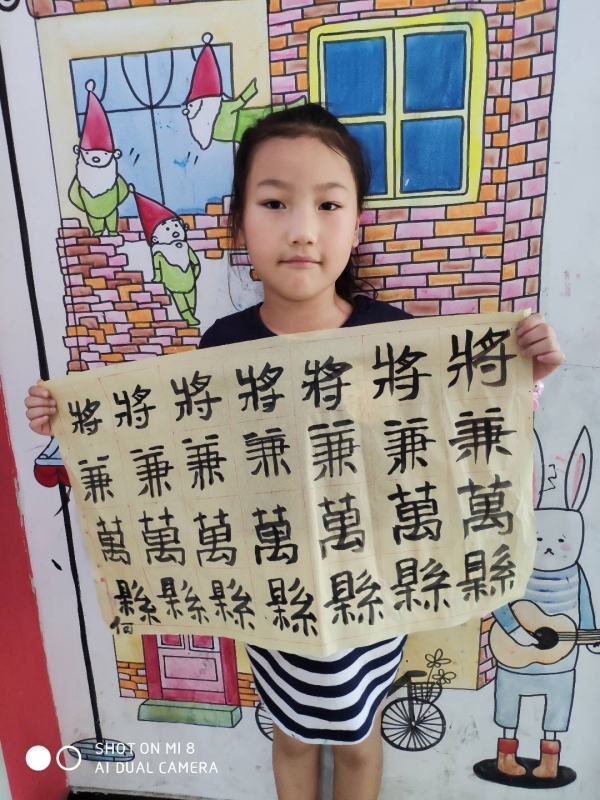 將兼萬縣
將兼萬縣
將兼萬縣
將兼萬縣
將兼萬縣
將兼萬縣
將兼萬縣
何
SHOT ON MI 8
AI DUAL CAMERA